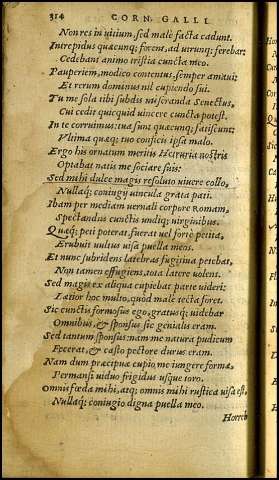 314 CORN. GALLI.
Non res in vitium, sed malè facta cadunt.
Intrepidus quæcunq; forent, ad utrunq; ferebar:
Cedebant animo tristia cuncta meo.
Pauperiem, modico contentus, semper amaui:
Et rerum dominus nil cupiendo fui.
Tu me sola tibi subdis miseranda Senectus,
Cui cedit quicquid vincere cuncta potest.
In te corruimus: tua sunt quæcunq; fatiscunt:
Vltima quæq; tuo conficis ipsa malo.
Ergo his ornatum meritis Hetruria nostris
Optabat natis me sociare suis:
Sed mihi dulce magis resoluto viuere collo,
Nullaq; coniugij vincula grata pati.
Ibam per mediam uenali corpore Romam,
Spectandus cunctis undiq; virginibus.
Quæq; peti poterat, fuerat vel fortè petita,
Erubuit vultus uisa puella meos.
Et nunc subridens latebras fugitiua petebat,
Non tamen effugiens, tota latere uolens.
Sed magis ex aliqua cupiebat parte uideri:
Lætior hoc multo, quòd malè tecta foret.
Sic cunctis formosus ego, gratusq; uidebar
Omnibus, & sponsus sic genialis eram.
Sed tantum sponsus: nam me natura pudicum
Fecerat, & casto pectore durus eram.
Nam dum præcipuæ cupio me iungere formæ,
Permansi viduo frigidus usque toro.
Omnis fœda mihi, atq; omnis mihi rustica uisa est,
Nullaq; coniugio digna puella meo.
Horreb